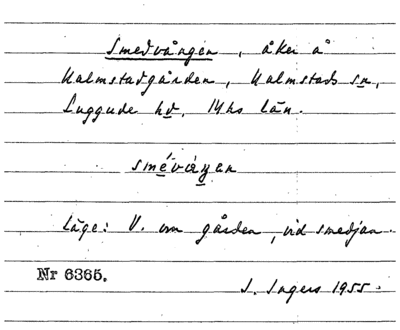 Smedvången, åker å
Kalmstadgården, Kalmstads sn,
Luggude hd, Mhs län.
smévåŋen
Läge: V. om gården, vid smedjan.
Nr 6365.
I. Ingers 1955.